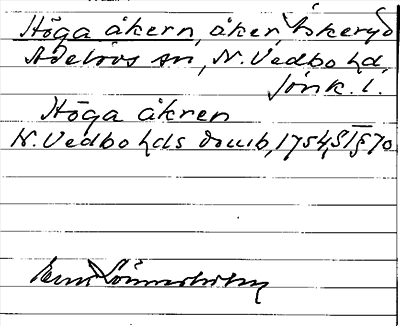 Höga åkern, åker, Askeryd
Adelövs sn, N. Vedbo hd,
Jönk. l.
Höga åkren
N. Vedbo hds domb, 1754, § 70